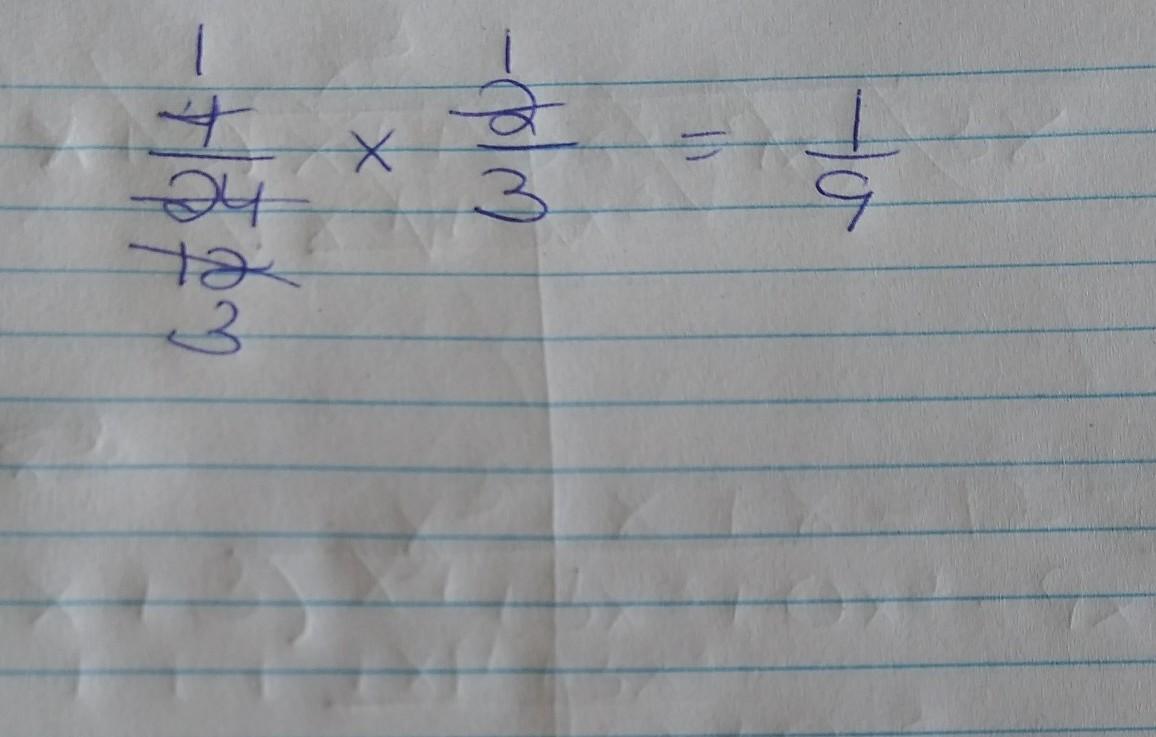 1 1
4/24 × 2/3 = 1/9
12
3